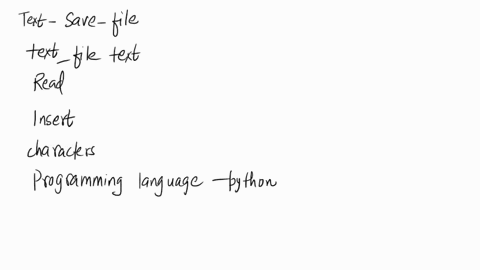 Text - Save - file
text_file text
Read
Insert
charackers
Programming language - python